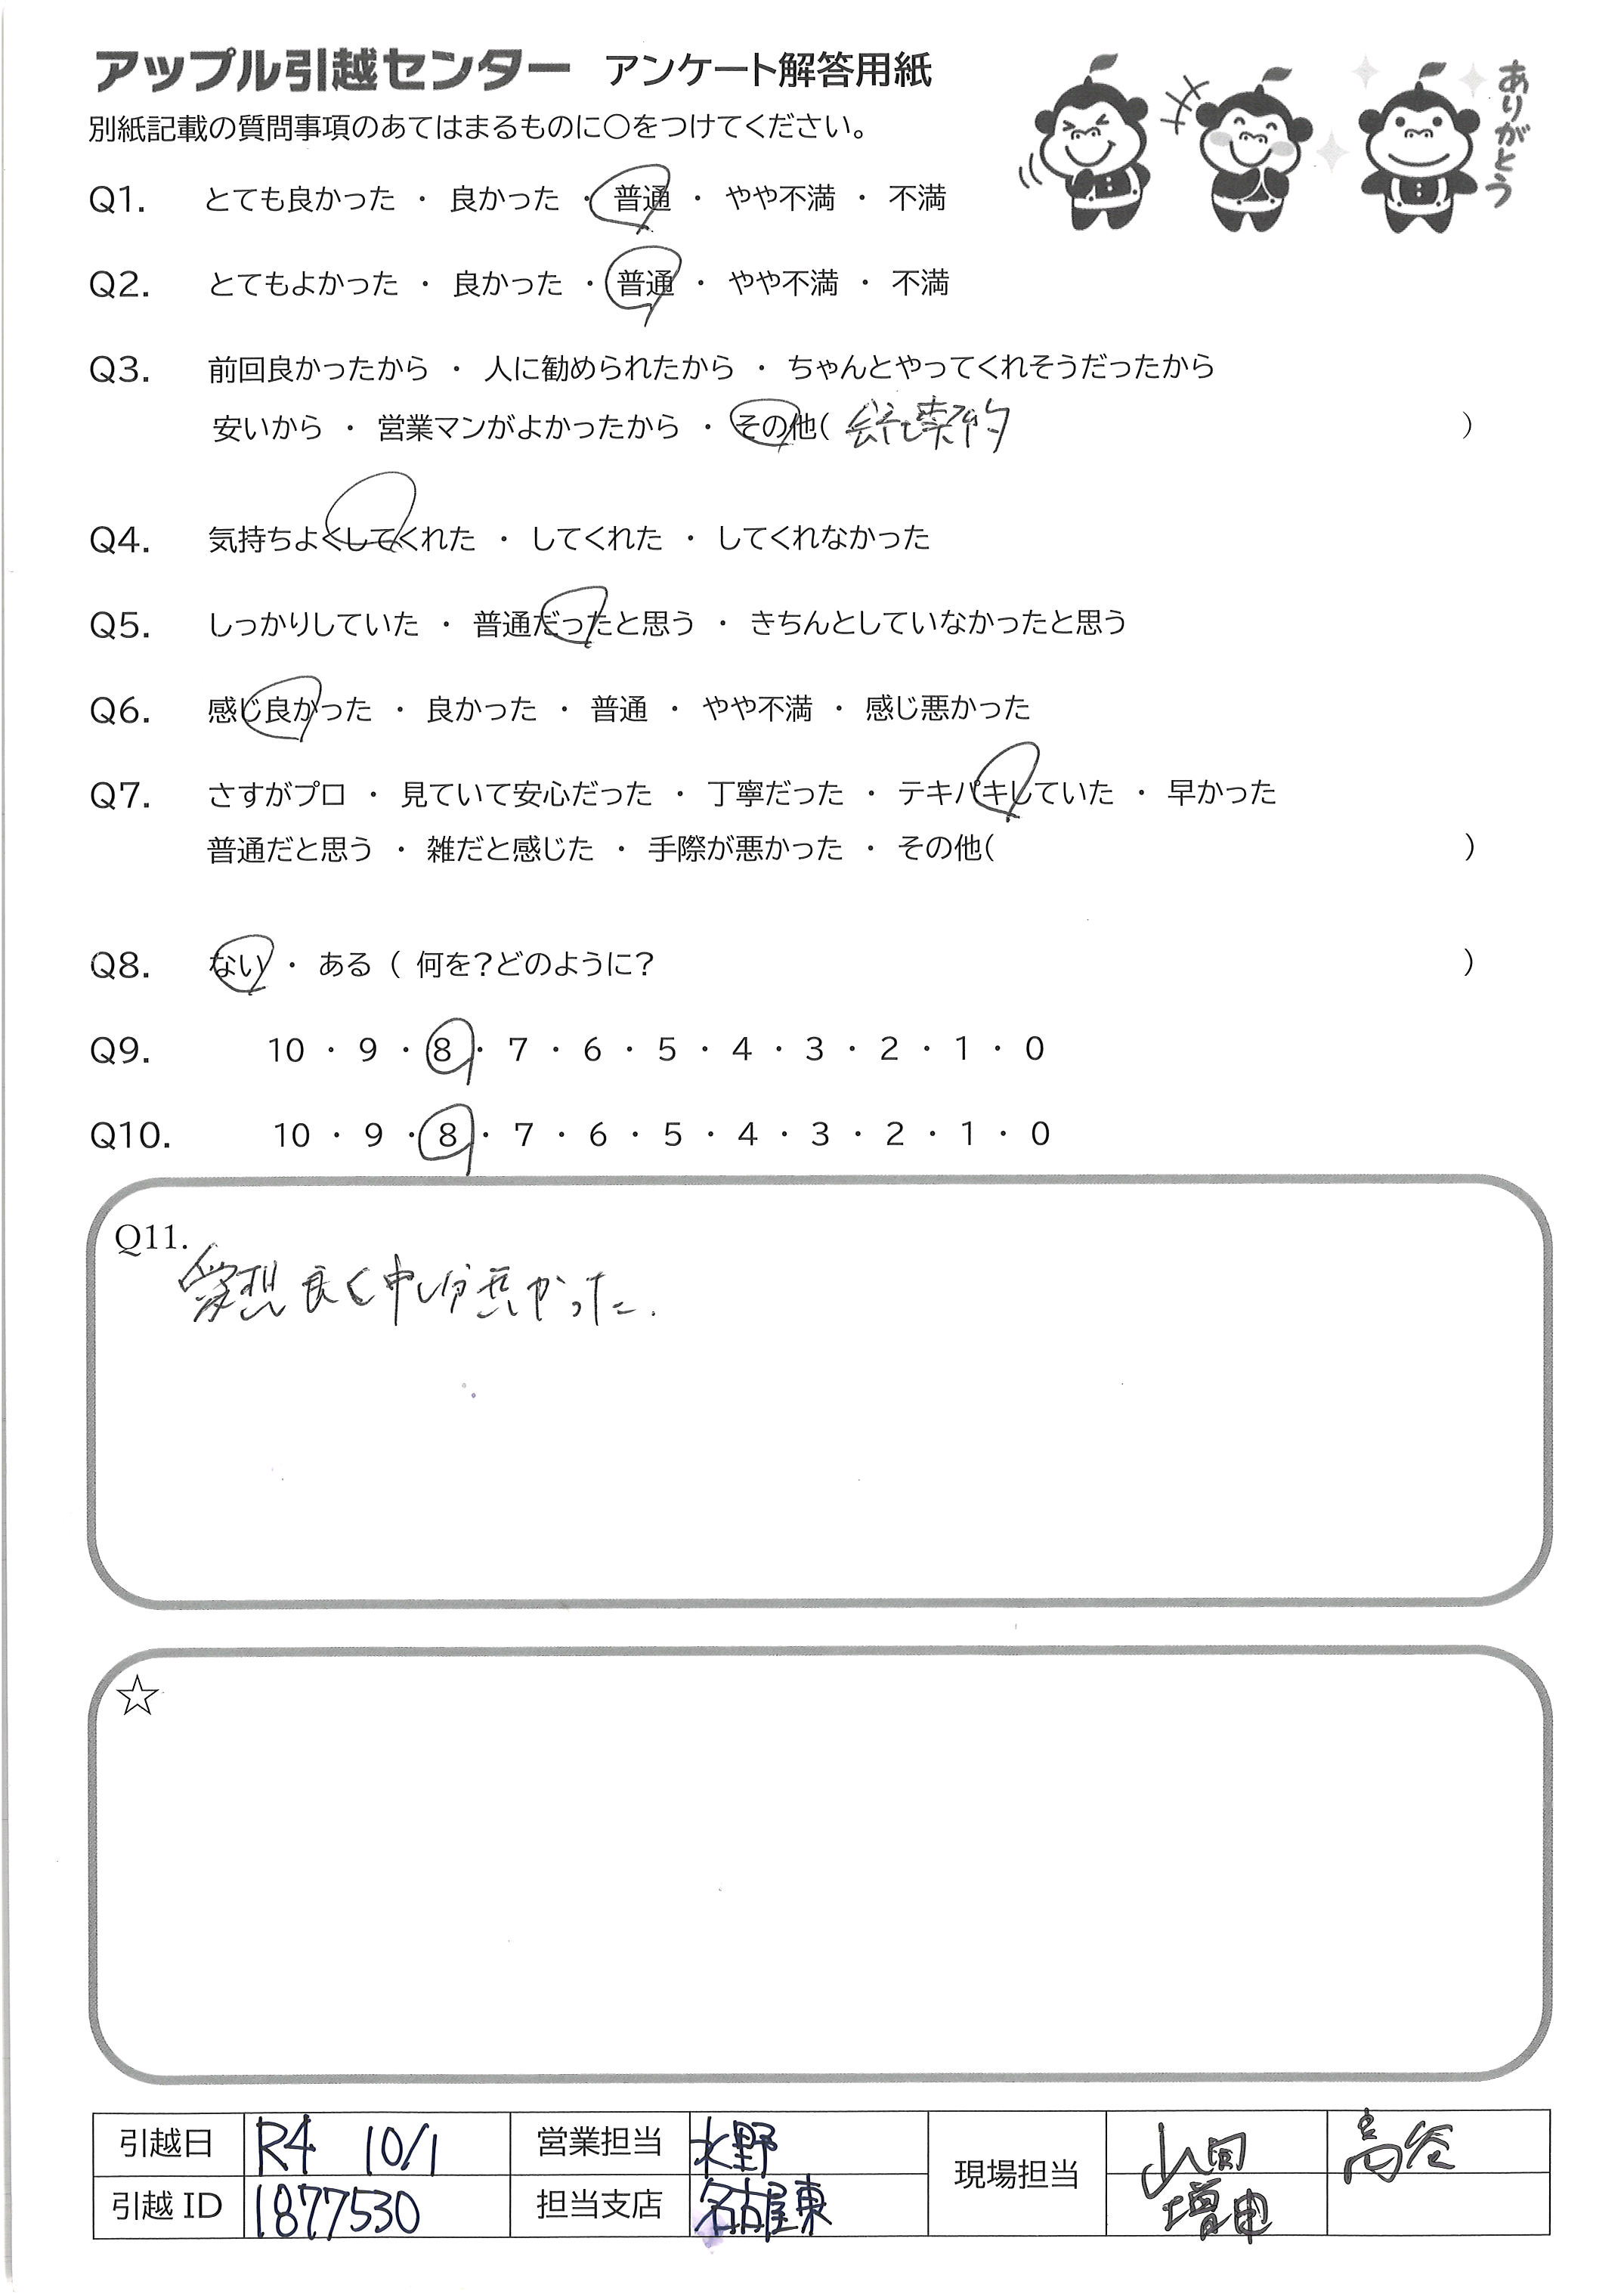 アップル引越センター アンケート解答用紙
ありがとう
別紙記載の質問事項のあてはまるものに○をつけてください。
Q1. とても良かった ・ 良かった ・ 普通 ・ やや不満 ・ 不満
Q2. とてもよかった ・ 良かった ・ 普通 ・ やや不満 ・ 不満
Q3. 前回良かったから ・ 人に勧められたから ・ ちゃんとやってくれそうだったから
安いから ・ 営業マンがよかったから ・ その他( )
Q4. 気持ちよくしてくれた ・ してくれた ・ してくれなかった
Q5. しっかりしていた ・ 普通だったと思う ・ きちんとしていなかったと思う
Q6. 感じ良かった ・ 良かった ・ 普通 ・ やや不満 ・ 感じ悪かった
Q7. さすがプロ ・ 見ていて安心だった ・ 丁寧だった ・ テキパキしていた ・ 早かった
普通だと思う ・ 雑だと感じた ・ 手際が悪かった ・ その他( )
Q8. ない ・ ある ( 何を?どのように? )
Q9. 10 ・ 9 ・ 8 ・ 7 ・ 6 ・ 5 ・ 4 ・ 3 ・ 2 ・ 1 ・ 0
Q10. 10 ・ 9 ・ 8 ・ 7 ・ 6 ・ 5 ・ 4 ・ 3 ・ 2 ・ 1 ・ 0
Q11.
愛想良く申し分無かった.
☆
引越日 R4 10/1 営業担当 水野 現場担当 高谷
引越 ID 1877530 担当支店 名古屋東 増田